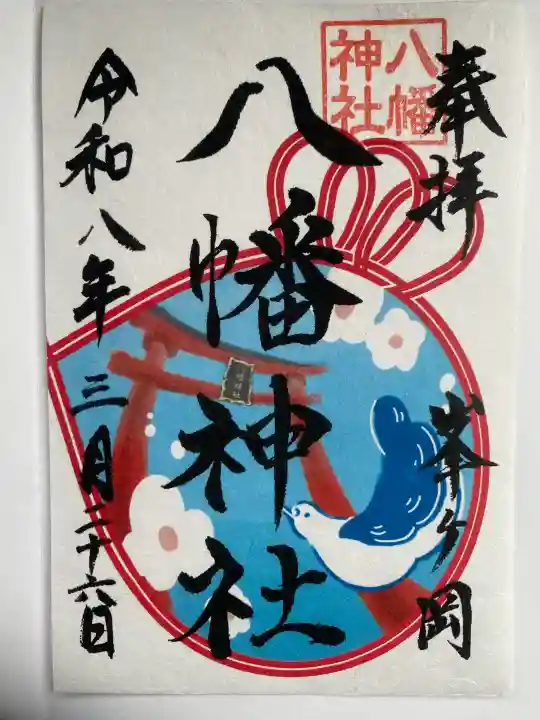 奉拝
峯ヶ岡
八幡神社
八幡神社
令和八年三月二十六日